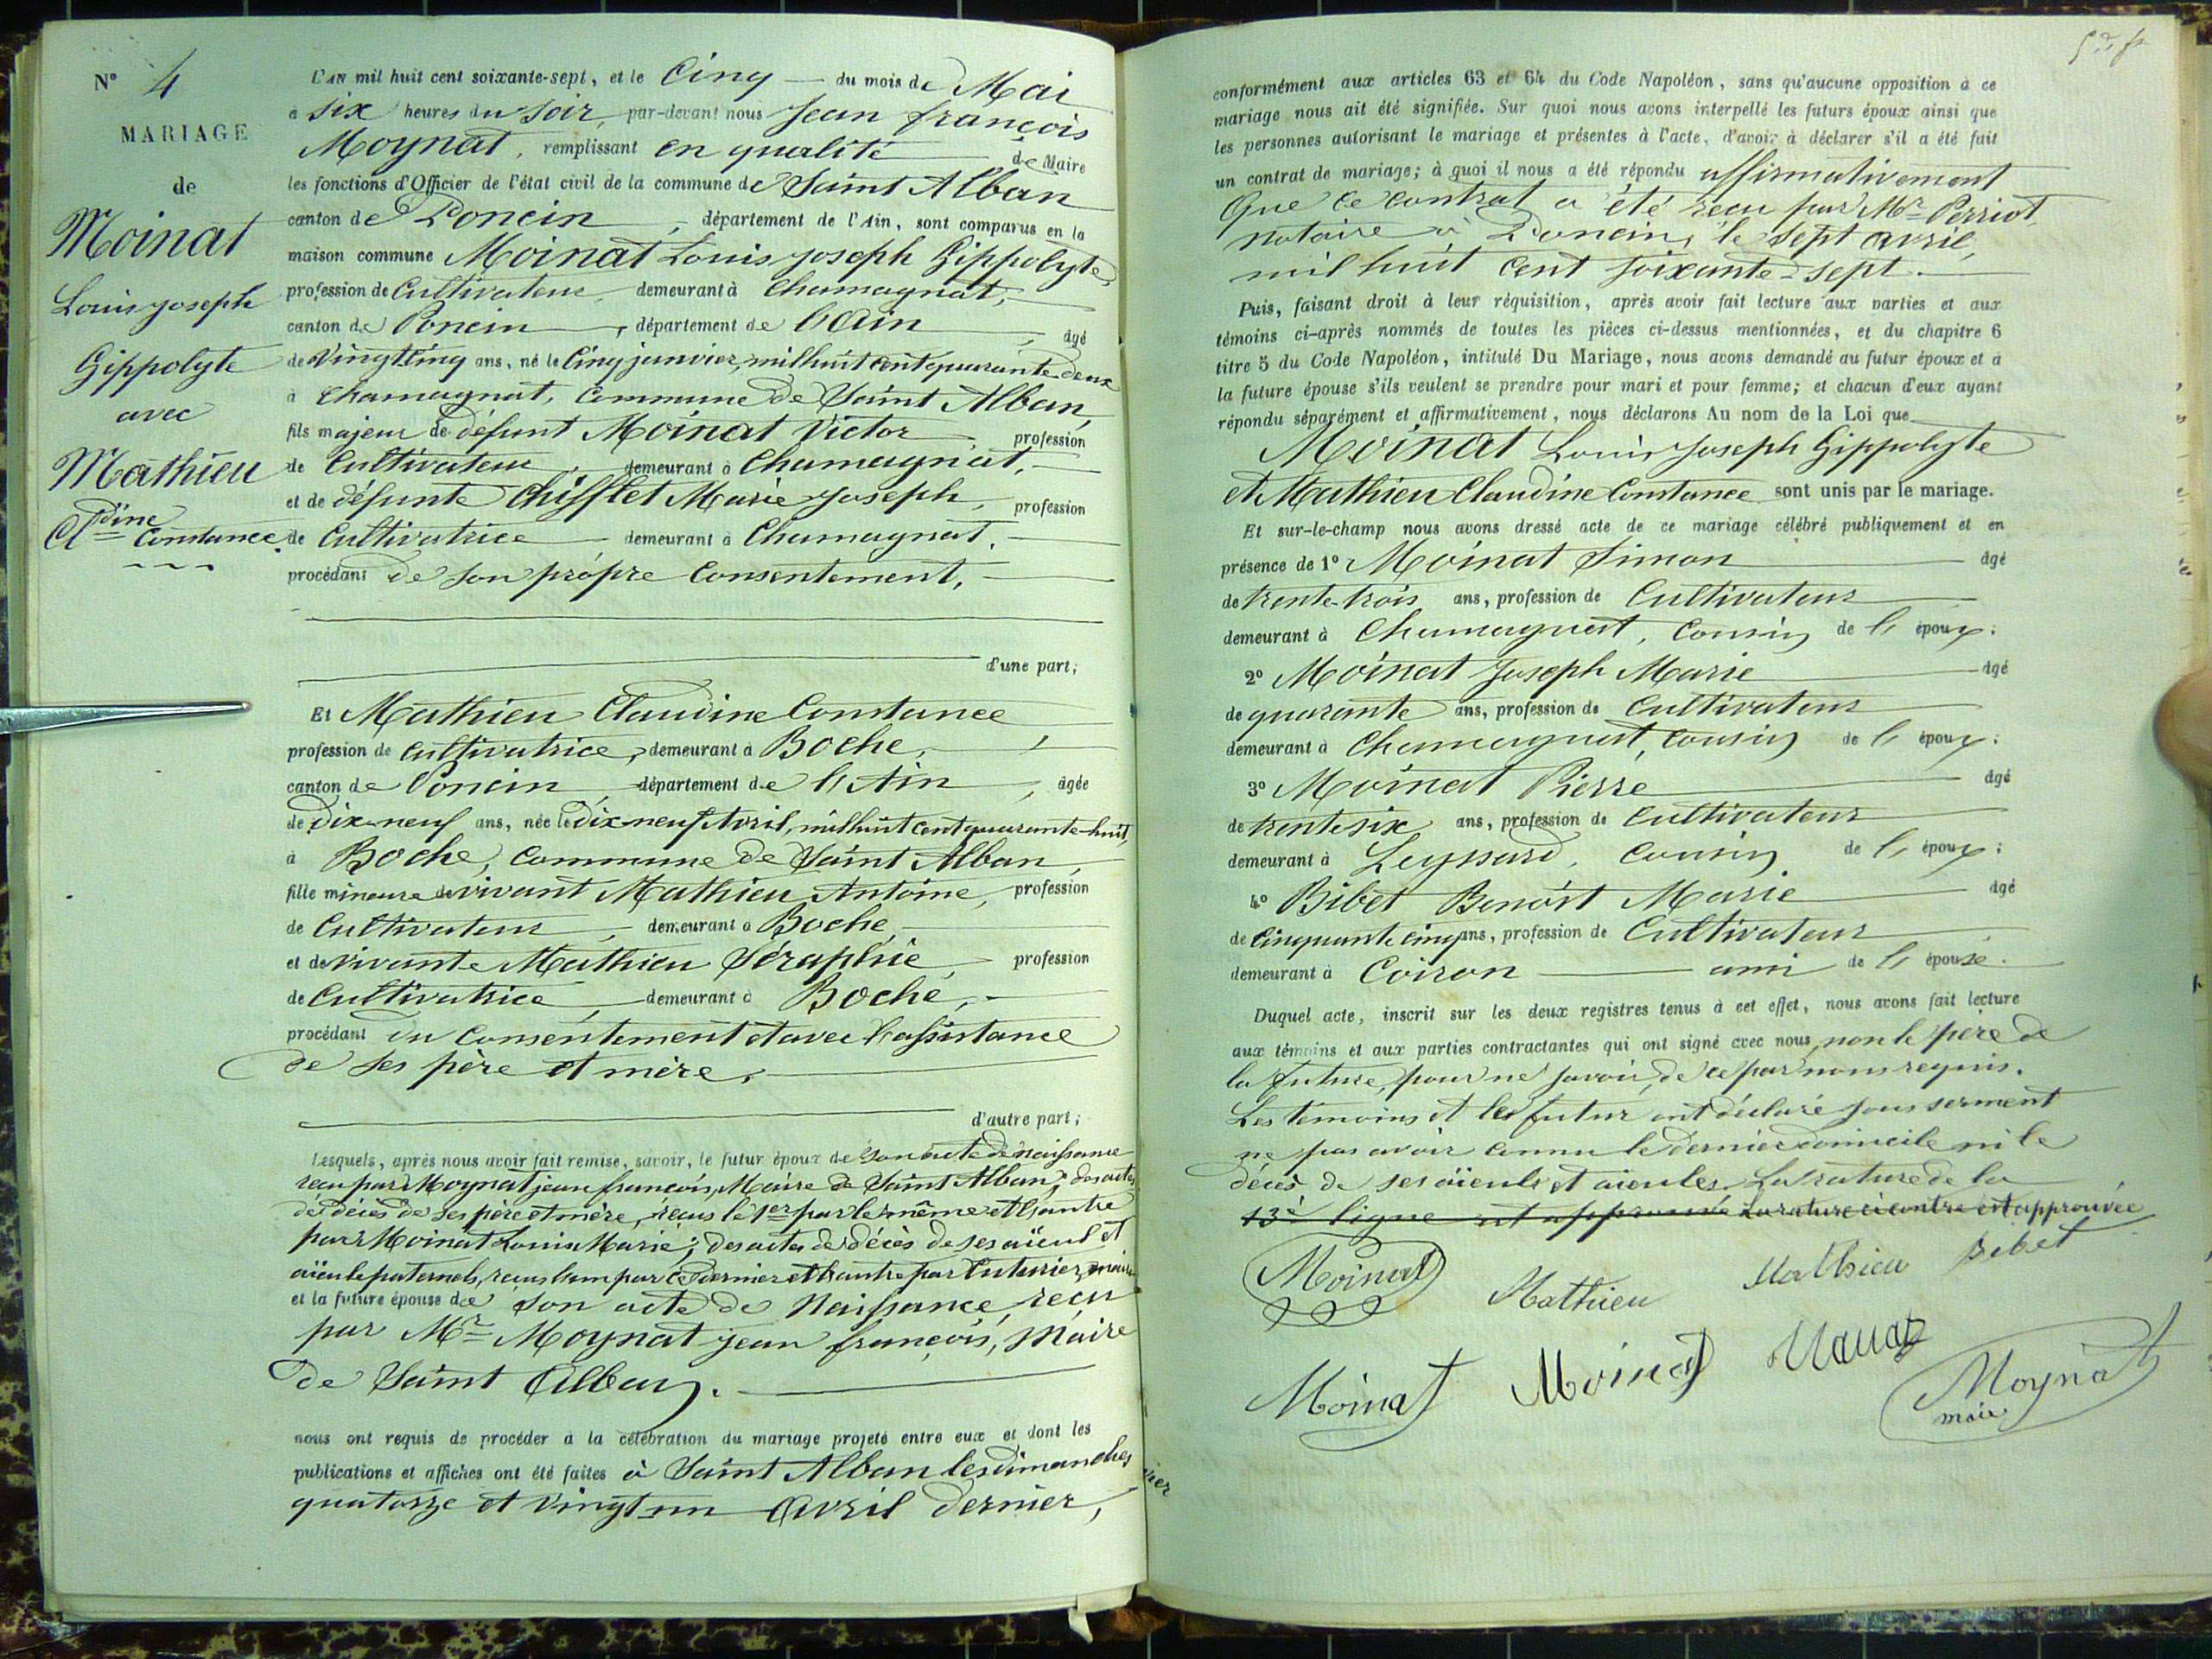 N° 4
MARIAGE
de
Moinat
Louis Joseph
Hippolyte
avec
Mathieu
Cl dine
Constance
L'AN mil huit cent soixante-sept, et le Cinq du mois de Mai
à six heures du soir, par-devant nous Jean françois
Moynat, remplissant en qualité de Maire
les fonctions d'Officier de l'état civil de la commune de Saint Alban
canton de Poncin, département de l'Ain, sont comparus en la
maison commune Moinat Louis Joseph Hippolyte
profession de Cultivateur, demeurant à Chamagnat,
canton de Poncin, département de l'Ain, âgé
de Vingt cinq ans, né le Cinq janvier, mil huit cent quarante-deux
à Chamagnat, Commune de Saint Alban,
fils majeur de défunt Moinat Victor profession
de Cultivateur, demeurant à Chamagnat,
et de défunte Chifflet Marie Joseph, profession
de Cultivatrice demeurant à Chamagnat,
procédant de son propre Consentement,
d'une part;
Et Mathieu Claudine Constance
profession de Cultivatrice, demeurant à Boche,
canton de Poncin, département de l'Ain, âgée
de Dix-neuf ans, née le Dix-neuf Avril, mil huit cent quarante-huit,
à Boche, Commune de Saint Alban,
fille mineure de vivant Mathieu Antoine, profession
de Cultivateur, demeurant à Boche,
et de vivante Mathieu Séraphie, profession
de Cultivatrice, demeurant à Boche,
procédant du Consentement et avec l'assistance
de ses père et mère.
d'autre part;
Lesquels, après nous avoir fait remise, savoir, le futur époux de son acte de naissance
reçu par Moynat jean françois, Maire de Saint Alban; des actes
de décès de ses père et mère, reçus le 1er par le même et l'autre
par Moinat Louis Marie; des actes de décès de ses aïeul et
aïeule paternels, reçus l'un par ce dernier et l'autre par
et la future épouse de son acte de Naissance, reçu
par Mr Moynat jean françois, Maire
de Saint Alban.
nous ont requis de procéder à la célébration du mariage projeté entre eux et dont les
publications et affiches ont été faites à Saint Alban les dimanches
quatorze et vingt un Avril dernier,
conformément aux articles 63 et 64 du Code Napoléon, sans qu'aucune opposition à ce
mariage nous ait été signifiée. Sur quoi nous avons interpellé les futurs époux ainsi que
les personnes autorisant le mariage et présentes à l'acte, d'avoir à déclarer s'il a été fait
un contrat de mariage; à quoi il nous a été répondu affirmativement
Que ce contrat a été reçu par Mr Perriot
notaire à Poncin, le sept avril,
mil huit cent soixante-sept.
Puis, faisant droit à leur réquisition, après avoir fait lecture aux parties et aux
témoins ci-après nommés de toutes les pièces ci-dessus mentionnées, et du chapitre 6
titre 5 du Code Napoléon, intitulé Du Mariage, nous avons demandé au futur époux et à
la future épouse s'ils veulent se prendre pour mari et pour femme; et chacun d'eux ayant
répondu séparément et affirmativement, nous déclarons Au nom de la Loi que
Moinat Louis Joseph Hippolyte
et Mathieu Claudine Constance sont unis par le mariage.
Et sur-le-champ nous avons dressé acte de ce mariage célébré publiquement et en
présence de 1° Moinat Simon âgé
de trente-trois ans, profession de Cultivateur
demeurant à Chamagnat, Cousin de l'époux;
2° Moinat Joseph Marie âgé
de quarante ans, profession de Cultivateur
demeurant à Chamagnat, Cousin de l'époux;
3° Moinat Pierre âgé
de trente six ans, profession de Cultivateur
demeurant à Leyssard, Cousin de l'époux;
4° Bibet Benoît Marie âgé
de Cinquante cinq ans, profession de Cultivateur
demeurant à Coiron ami de l'épouse.
Duquel acte, inscrit sur les deux registres tenus à cet effet, nous avons fait lecture
aux témoins et aux parties contractantes qui ont signé avec nous, non le père de
la future, pour ne savoir, de ce par nous requis.
Les témoins et les futur ont déclaré sous serment
ne pas avoir connu le dernier domicile ni le
décès de ses aïeuls et aïeules. La rature de la
13e ligne est approuvée La rature ci contre est approuvée
Moinat Mathieu Mathieu Bibet
Moinat Moinat Moynat
maire